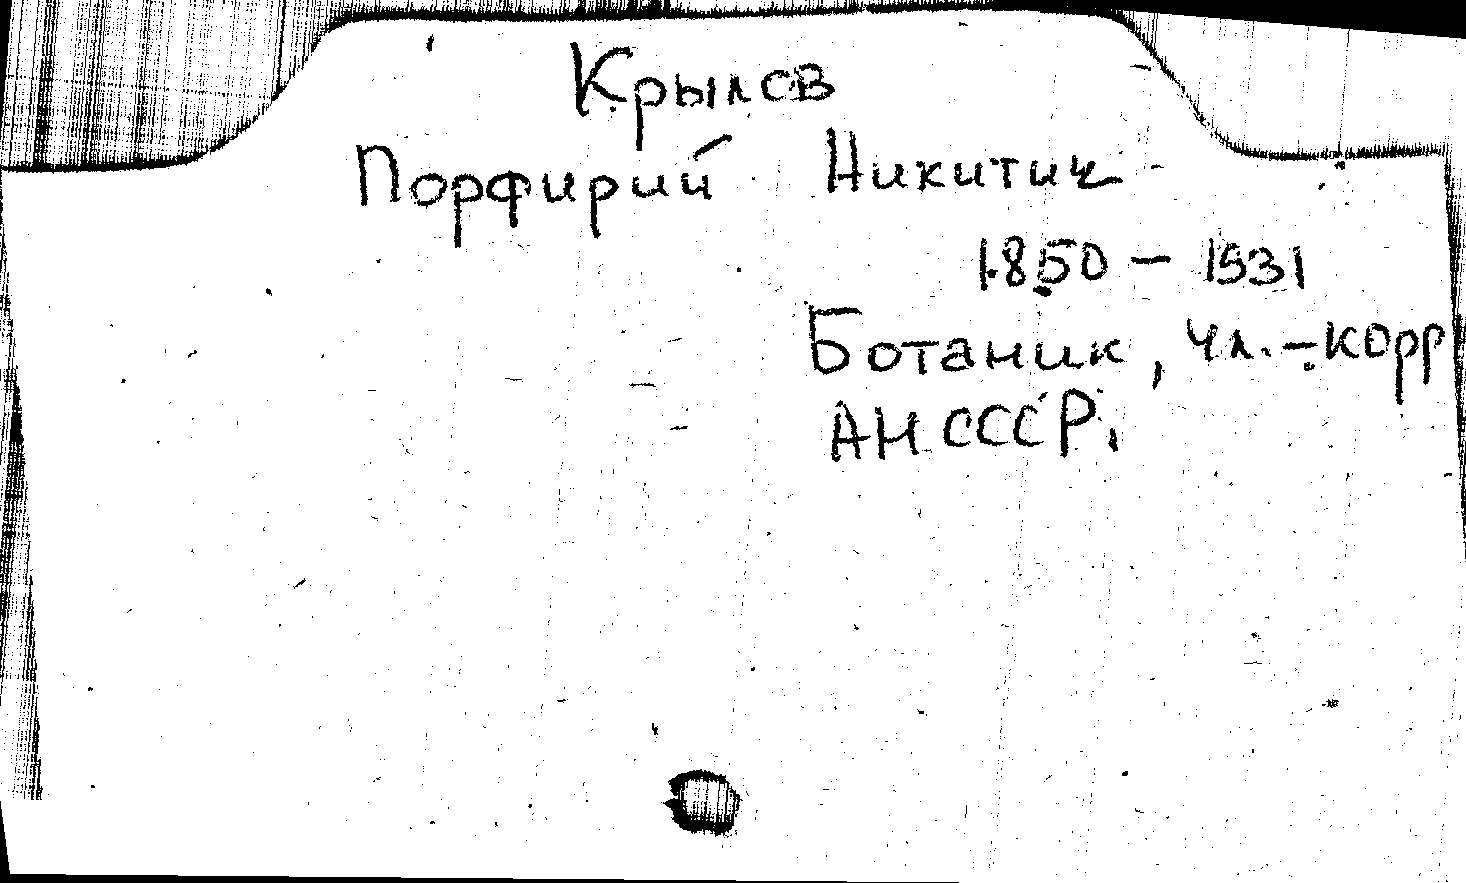 Крылов
Порфирий Никитич
1850 – 1931
Ботаник, чл.-корр
АН СССР.